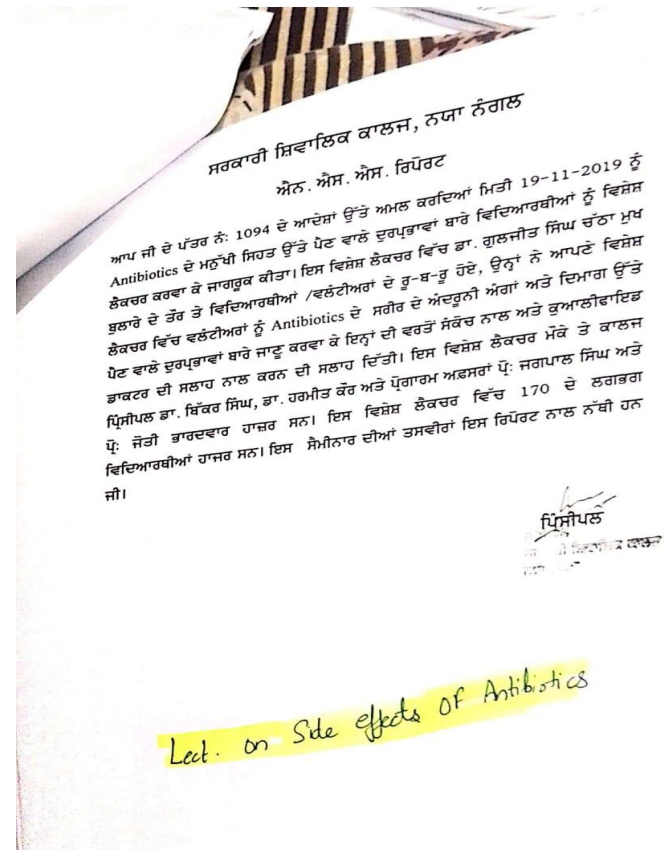 ਸਰਕਾਰੀ ਸ਼ਿਵਾਲਿਕ ਕਾਲਜ, ਨਯਾ ਨੰਗਲ
ਐਨ. ਐਸ. ਐਸ. ਰਿਪੋਰਟ
ਆਪ ਜੀ ਦੇ ਪੱਤਰ ਨੰ: 1094 ਦੇ ਆਦੇਸ਼ਾਂ ਉੱਤੇ ਅਮਲ ਕਰਦਿਆਂ ਮਿਤੀ 19-11-2019 ਨੂੰ
Antibiotics ਦੇ ਮਨੁੱਖੀ ਸਿਹਤ ਉੱਤੇ ਪੈਣ ਵਾਲੇ ਦੁਰਪ੍ਰਭਾਵਾਂ ਬਾਰੇ ਵਿਦਿਆਰਥੀਆਂ ਨੂੰ ਵਿਸ਼ੇਸ਼
ਲੈਕਚਰ ਕਰਵਾ ਕੇ ਜਾਗਰੂਕ ਕੀਤਾ। ਇਸ ਵਿਸ਼ੇਸ਼ ਲੈਕਚਰ ਵਿੱਚ ਡਾ. ਗੁਲਜੀਤ ਸਿੰਘ ਚੱਠਾ ਮੁਖ
ਬੁਲਾਰੇ ਦੇ ਤੌਰ ਤੇ ਵਿਦਿਆਰਥੀਆਂ /ਵਲੰਟੀਅਰਾਂ ਦੇ ਰੂ-ਬ-ਰੂ ਹੋਏ, ਉਨ੍ਹਾਂ ਨੇ ਆਪਣੇ ਵਿਸ਼ੇਸ਼
ਲੈਕਚਰ ਵਿੱਚ ਵਲੰਟੀਅਰਾਂ ਨੂੰ Antibiotics ਦੇ ਸਰੀਰ ਦੇ ਅੰਦਰੂਨੀ ਅੰਗਾਂ ਅਤੇ ਦਿਮਾਗ ਉੱਤੇ
ਪੈਣ ਵਾਲੇ ਦੁਰਪ੍ਰਭਾਵਾਂ ਬਾਰੇ ਜਾਣੂ ਕਰਵਾ ਕੇ ਇਨ੍ਹਾਂ ਦੀ ਵਰਤੋਂ ਸੰਕੋਚ ਨਾਲ ਅਤੇ ਕੁਆਲੀਫਾਇਡ
ਡਾਕਟਰ ਦੀ ਸਲਾਹ ਨਾਲ ਕਰਨ ਦੀ ਸਲਾਹ ਦਿੱਤੀ। ਇਸ ਵਿਸ਼ੇਸ਼ ਲੈਕਚਰ ਮੌਕੇ ਤੇ ਕਾਲਜ
ਪ੍ਰਿੰਸੀਪਲ ਡਾ. ਬਿੱਕਰ ਸਿੰਘ, ਡਾ. ਹਰਮੀਤ ਕੌਰ ਅਤੇ ਪ੍ਰੋਗਾਰਮ ਅਫ਼ਸਰਾਂ ਪ੍ਰੋ: ਜਗਪਾਲ ਸਿੰਘ ਅਤੇ
ਪ੍ਰੋ: ਜੋਤੀ ਭਾਰਦਵਾਰ ਹਾਜ਼ਰ ਸਨ। ਇਸ ਵਿਸ਼ੇਸ਼ ਲੈਕਚਰ ਵਿੱਚ 170 ਦੇ ਲਗਭਗ
ਵਿਦਿਆਰਥੀਆਂ ਹਾਜਰ ਸਨ। ਇਸ ਸੈਮੀਨਾਰ ਦੀਆਂ ਤਸਵੀਰਾਂ ਇਸ ਰਿਪੋਰਟ ਨਾਲ ਨੱਥੀ ਹਨ
ਜੀ।
ਪ੍ਰਿੰਸੀਪਲ
ਕਾਲਜ
Lect. on Side effects Of Antibiotics